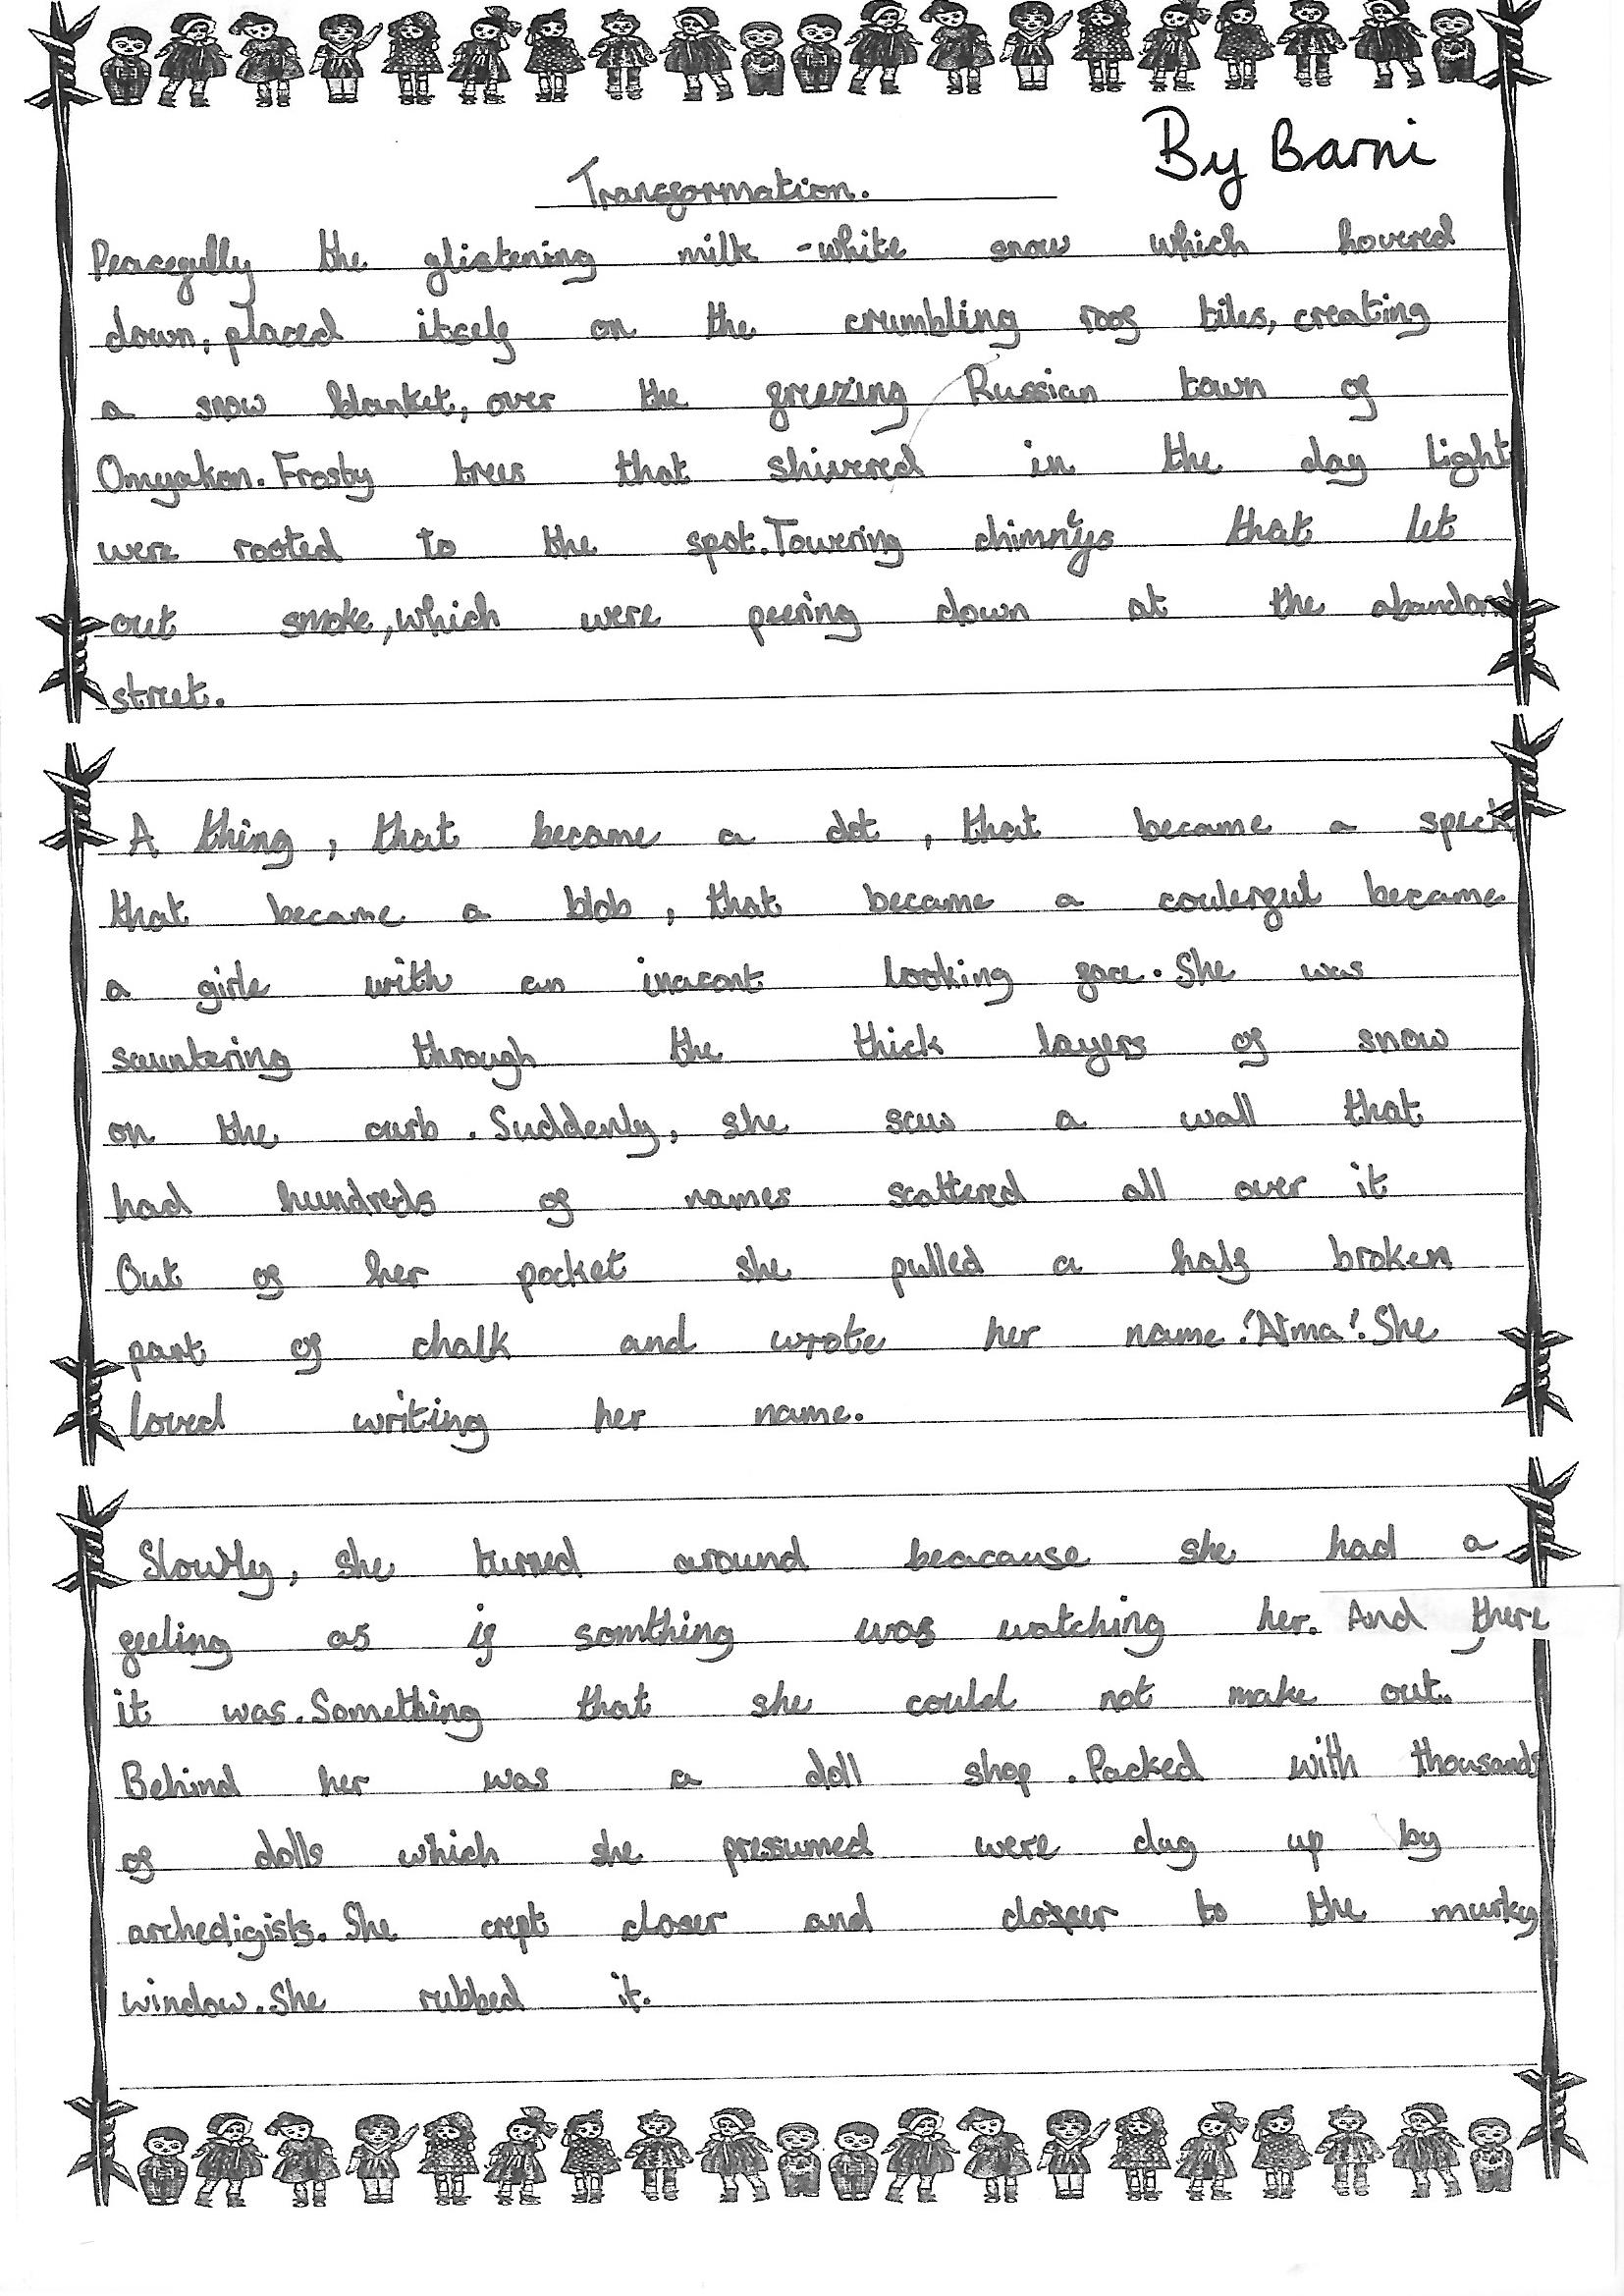 By Barni
Transformation.
Peacefully the glistening milk-white snow which hovered
down, placed itself on the crumbling roof tiles, creating
a snow blanket, over the freezing Russian town of
Omyakon. Frosty trees that shivered in the day light
were rooted to the spot. Towering chimneys that let
out smoke, which were peering down at the abandond
street.
A thing, that became a dot, that became a speck
that became a blob, that became a coulerful became
a girle with an inacont looking face. She was
sauntering through the thick layers of snow
on the curb. Suddenly, she saw a wall that
had hundreds of names scattered all over it
Out of her pocket she pulled a half broken
part of chalk and wrote her name. 'Alma'. She
loved writing her name.
Slowly, she turned around beacause she had a
feeling as if somthing was watching her. And there
it was. Something that she could not make out.
Behind her was a doll shop. Packed with thousands
of dolls which she pressumed were dug up by
archedigists. She crept closer and closer to the murky
window. She rubbed it.